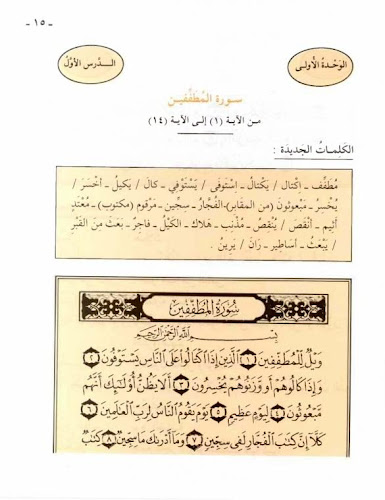 - ١٥ -
الوَحْدَةُ الأولى
الـدَّرس الأوَّلُ
سورة المُطَفِّفِين
من الآية (١) إلى الآية (١٤)
الكَلِمـاتُ الجَديدَة :
مُطَفِّف ـ اِكْتالَ / يَكْتالُ ـ اِسْتَوفَى / يَسْتَوْفِي ـ كالَ / يَكيلُ ـ أَخْسَرَ /
يُخْسِرُ ـ مَبْعوثونَ (من المقابر)ـ الفُجّارُ ـ سِجّين ـ مَرْقوم (مكتوب)ـ مُعْتَدٍ
أثيم ـ أَنْقَصَ / يُنْقِصُ ـ مُذْنِب ـ هَلاك ـ الكَيْلُ ـ فاجِرٌ ـ بَعَثَ مِنَ القَبْرِ
/ يَبْعَثُ ـ أساطير ـ رَانَ / يَرينُ .
سُورَةُ المُطَفِّفِينَ
بِسْمِ اللَّهِ الرَّحْمَٰنِ الرَّحِيمِ
وَيْلٌ لِّلْمُطَفِّفِينَ ﴿١﴾ الَّذِينَ إِذَا اكْتَالُوا عَلَى النَّاسِ يَسْتَوْفُونَ ﴿٢﴾
وَإِذَا كَالُوهُمْ أَو وَّزَنُوهُمْ يُخْسِرُونَ ﴿٣﴾ أَلَا يَظُنُّ أُوْلَٰئِكَ أَنَّهُم
مَّبْعُوثُونَ ﴿٤﴾ لِيَوْمٍ عَظِيمٍ ﴿٥﴾ يَوْمَ يَقُومُ النَّاسُ لِرَبِّ الْعَالَمِينَ ﴿٦﴾
كَلَّا إِنَّ كِتَابَ الْفُجَّارِ لَفِي سِجِّينٍ ﴿٧﴾ وَمَا أَدْرَاكَ مَا سِجِّينٌ ﴿٨﴾ كِتَابٌ